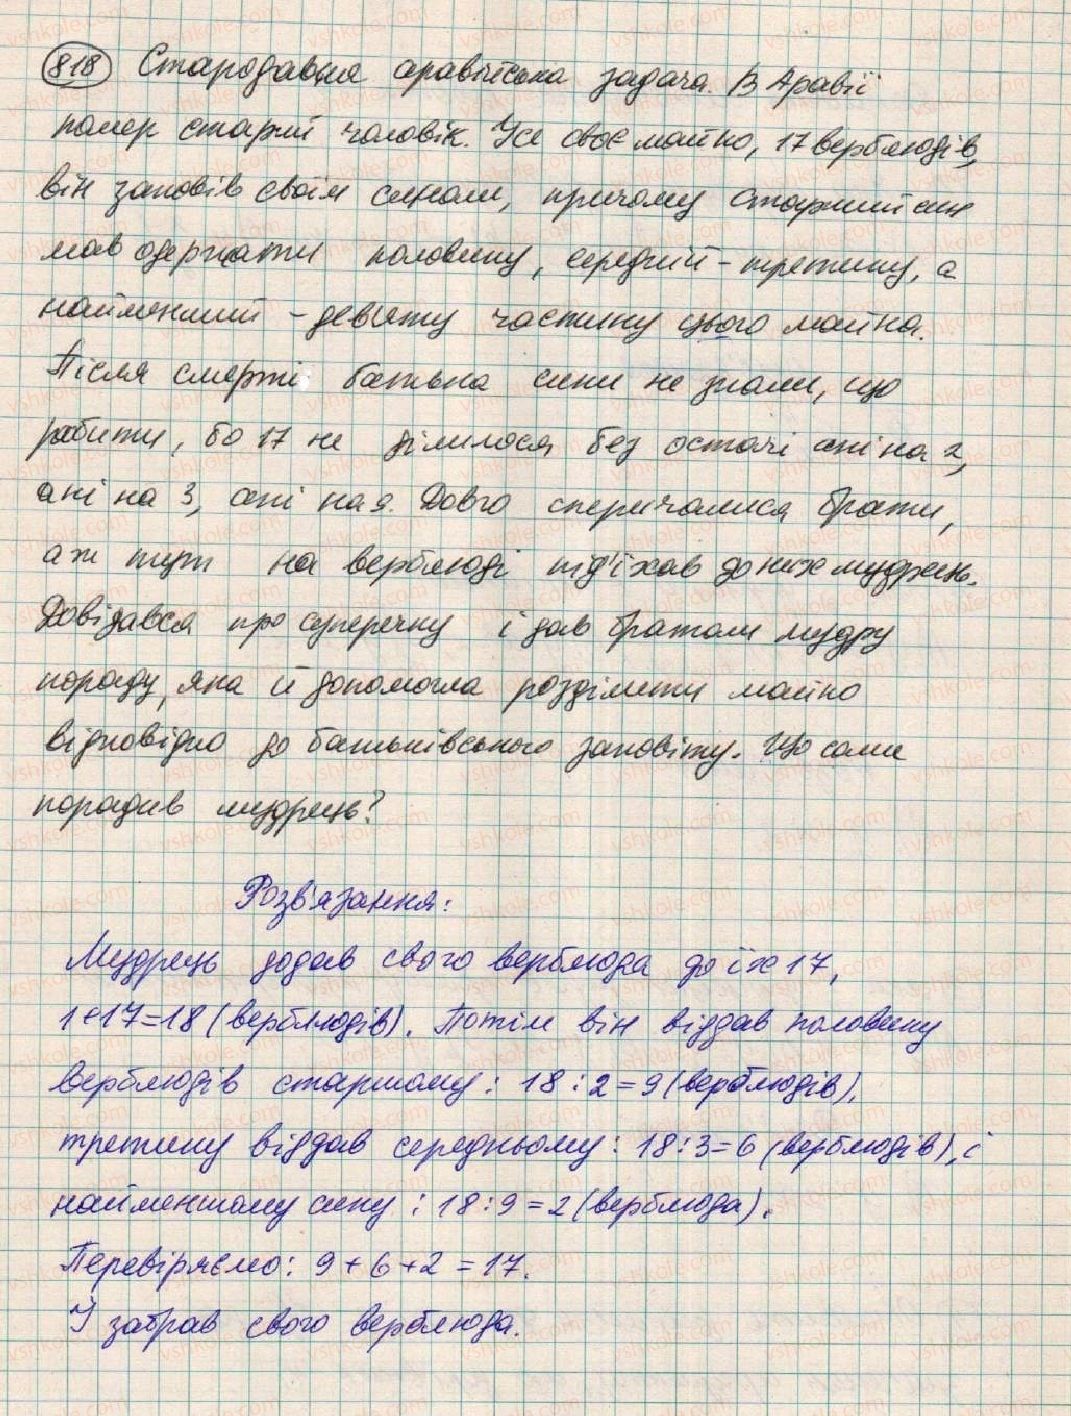 818 Стародавня аравійська задача. В Аравії
помер старий чоловік. Усе своє майно, 17 верблюдів,
він заповів своїм синам, причому старший син
мав одержати половину, середній - третину, а
найменший - дев'яту частину цього майна.
Після смерті батька сини не знали, що
робити, бо 17 не ділилося без остачі ані на 2,
ані на 3, ані на 9. Довго сперечалися брати,
аж тут на верблюді під'їхав до них мудрець.
Довідався про суперечку і дав братам мудру
пораду, яка й допомогла розділити майно
відповідно до батьківського заповіту. Що саме
порадив мудрець?
Розв'язання:
Мудрець додав свого верблюда до їх 17,
1+17=18 (верблюдів). Потім він віддав половину
верблюдів старшому: 18:2=9 (верблюдів),
третину віддав середньому: 18:3=6 (верблюдів), і
найменшому сину: 18:9=2 (верблюда).
Перевіряємо: 9+6+2=17.
І забрав свого верблюда.